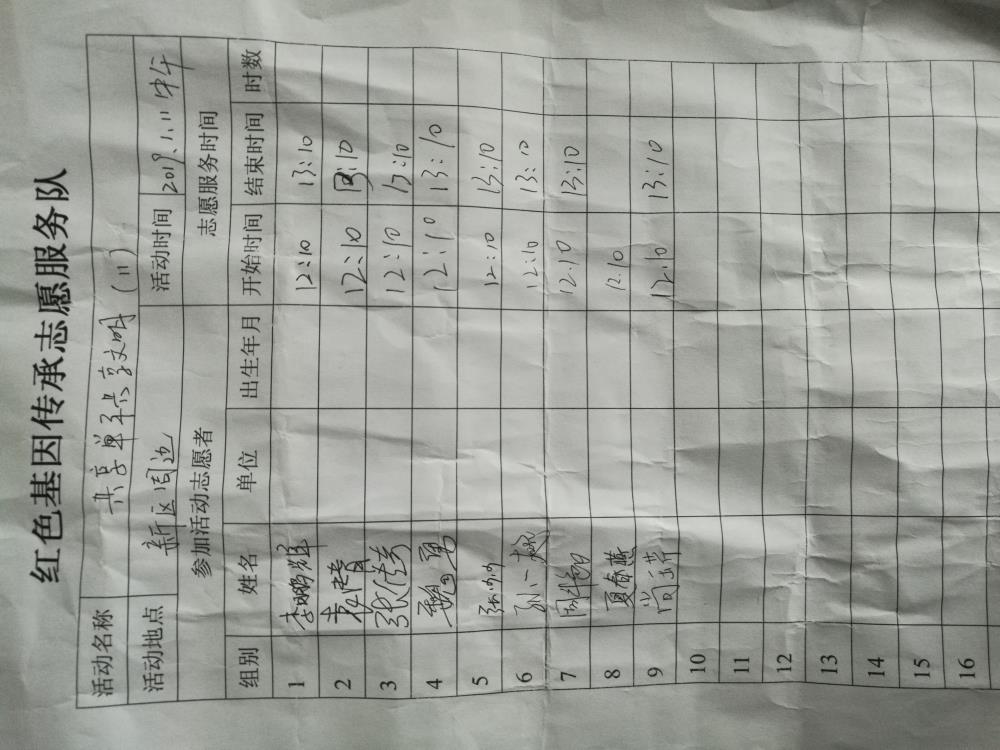 红色基因传承志愿服务队
活动名称 共享单车共享文明(二)
活动地点 新区周边 活动时间 2019.1.11中午
参加活动志愿者 志愿服务时间
组别 姓名 单位 出生年月 开始时间 结束时间 时数
1 李鹏辉 12:10 13:10
2 12:10 13:10
3 12:10 13:10
4 12:10 13:10
5 12:10 13:10
6 12:10 13:10
7 12.10 13:10
8 夏春燕 12.10
9 12:10 13:10
10
11
12
13
14
15
16